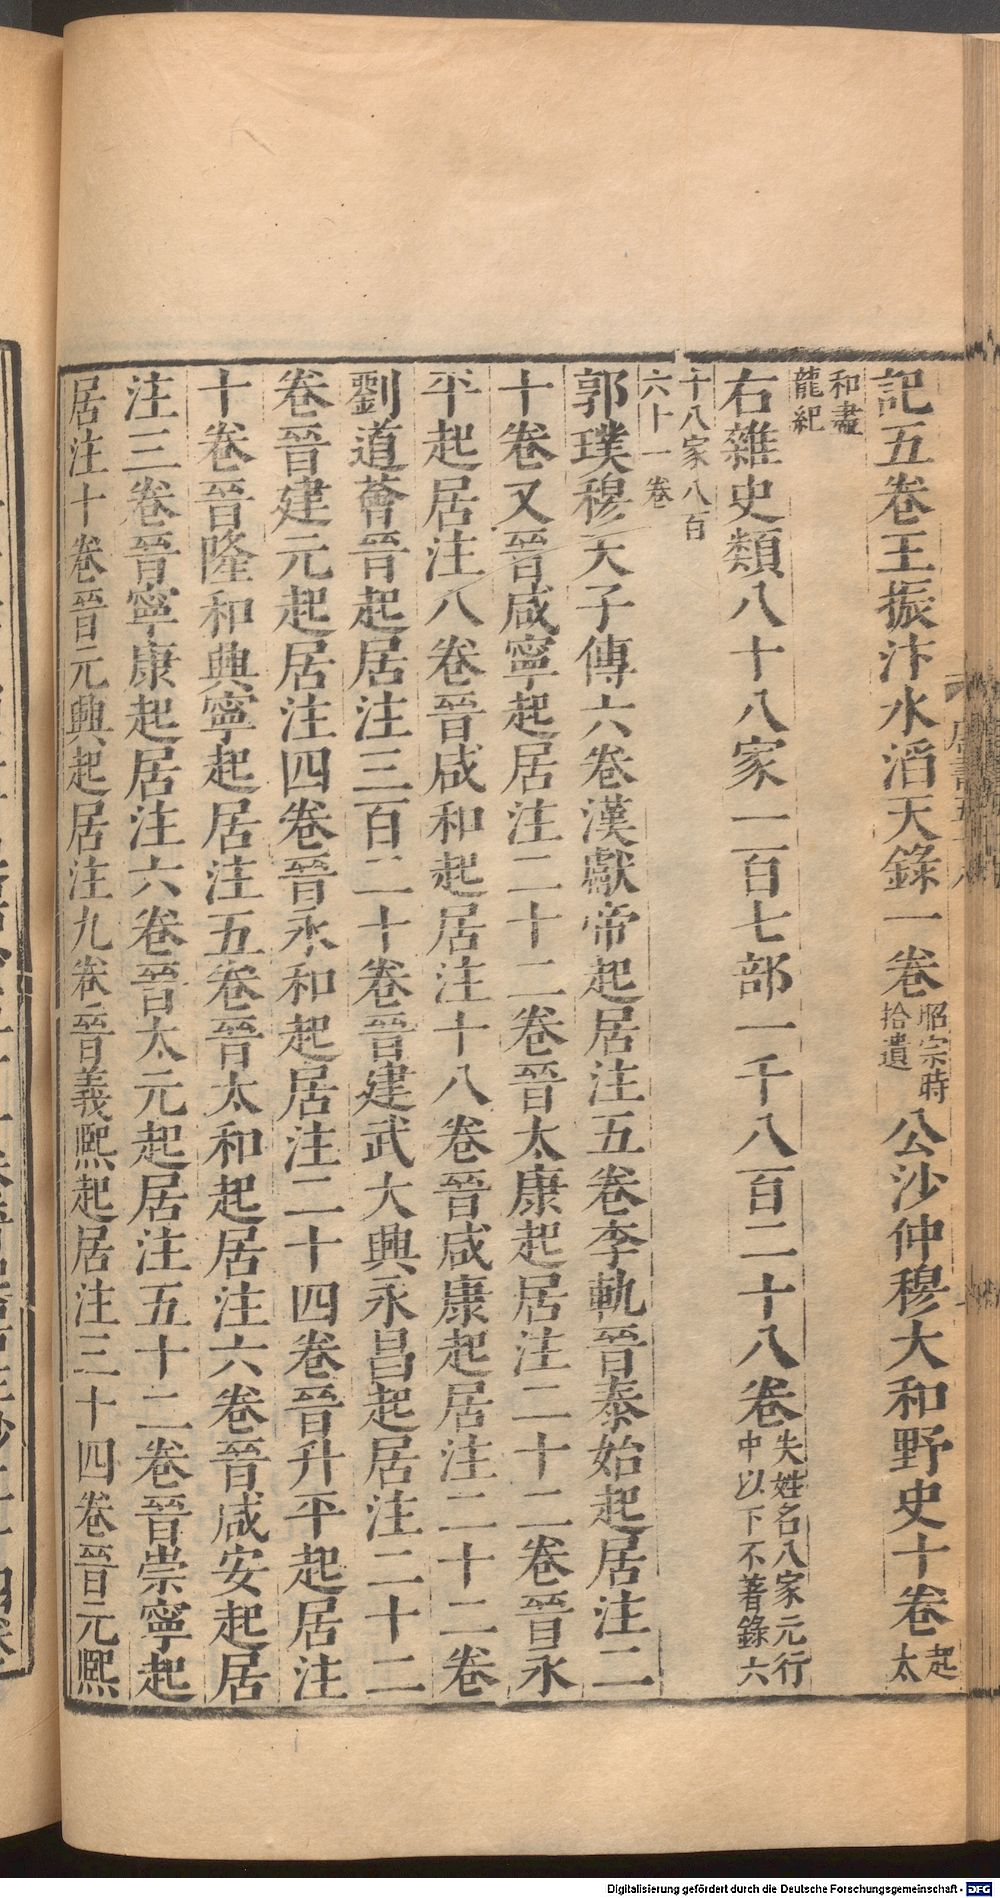 記五卷王振汴水滔天錄一卷昭宗時拾遺公沙仲穆大和野史十卷起太
和盡龍紀
右雜史類八十八家一百七部一千八百二十八卷失姓名八家元行中以下不著錄六
十八家八百六十一卷
郭璞穆天子傳六卷漢獻帝起居注五卷李軌晉泰始起居注二
十卷又晉咸寧起居注二十二卷晉太康起居注二十二卷晉永
平起居注八卷晉咸和起居注十八卷晉咸康起居注二十二卷
劉道薈晉起居注三百二十卷晉建武大興永昌起居注二十二
卷晉建元起居注四卷晉永和起居注二十四卷晉升平起居注
十卷晉隆和興寧起居注五卷晉太和起居注六卷晉咸安起居
注三卷晉寧康起居注六卷晉太元起居注五十二卷晉崇寧起
居注十卷晉元興起居注九卷晉義熙起居注三十四卷晉元熙
Digitalisierung gefördert durch die Deutsche Forschungsgemeinschaft - DFG